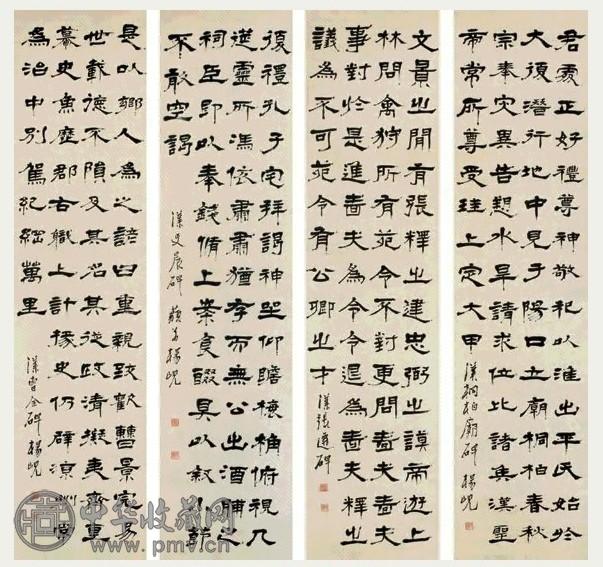 君處正好禮尊神敬祀以淮出平氏始於
大復潛行地中見于陽口立廟桐柏春秋
宗奉灾異告愬水旱請求位比諸矦漢聖
帝常所尊受珪上定大甲 漢桐柏廟碑 楊峴
文景之間有張釋之建忠弼之謨帝遊上
林問禽狩所有苑令不對更問嗇夫嗇夫
事對於是進嗇夫為令令退為嗇夫釋之
議為不可苑令有公卿之才 漢張遷碑
復禮孔子宅拜謁神坐仰瞻榱桷俯視几
筵靈所馮依肅肅猶存而無公出酒脯之
祠臣即以奉錢脩上案食醊具以敘小節
不敢空謁 漢史晨碑 藐翁楊峴
是以鄉人為之諺曰重親致歡曹景完易
世載德不隕及其名其從政清擬夷齊直
慕史魚歷郡右職上計掾史仍辟涼州常
為治中別駕紀綱萬里 漢曹全碑 楊峴
中华收藏网
www.pmv.cn